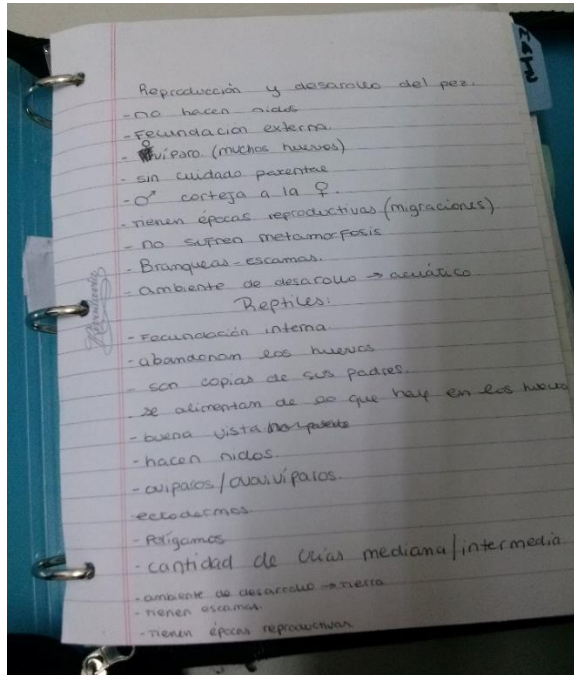 Reproducción y desarollo del pez.
- no hacen nidos
- Fecundación externa.
- víparo (muchos huevos)
- sin cuidado parental
- ♂ corteja a la ♀.
- tienen épocas reproductivas (migraciones)
- no sufren metamorfosis
- Branqueas - escamas.
- ambiente de desarollo → acuático.
Reptiles:
- Fecundación interna
- abandonan los huevos
- son copias de sus padres.
- se alimentan de lo que hay en los huevo
- buena vista
- hacen nidos.
- oviparos / ovovivíparos.
ectodermos
- Polígamos
- cantidad de crías mediana / intermedia
- ambiente de desarrollo → tierra
- tienen escamas.
- tienen épocas reproductivas.